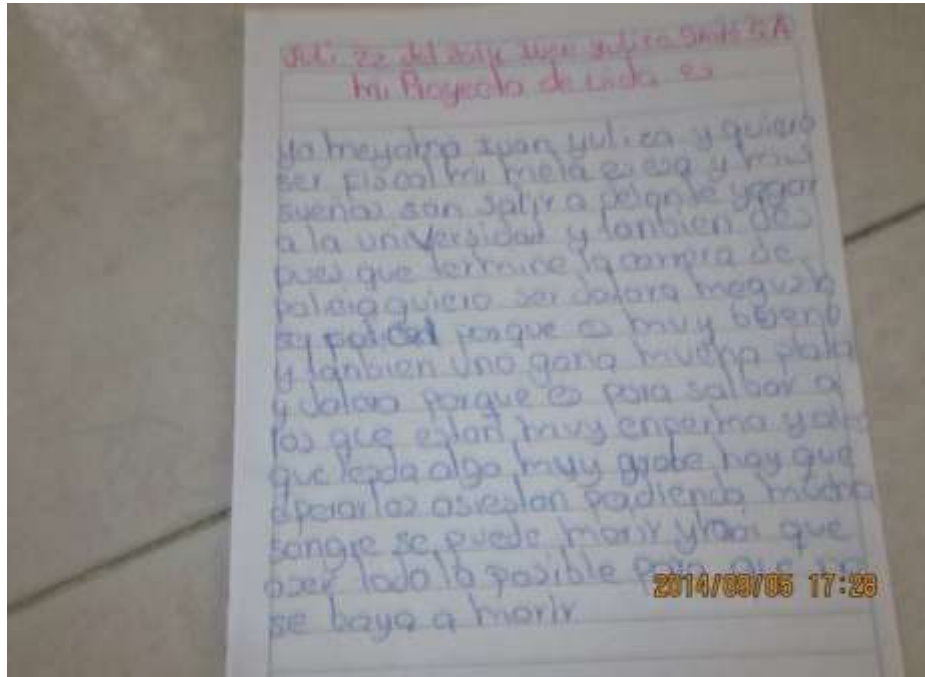 Juli 22 del 2014 Iuan yuliza 5A
mi Proyecto de vida es
yo meyamo Iuan yuliza y quiero
ser fiscal mi meta es esa y mis
sueños son salir a pelante yegar
a la universidad y tanbien des
pues que termine la carrera de
policia quiero ser dotora megusta
ser policia porque es muy bueno
y tanbien uno gana mucha plata
y dotora porque es para salbar a
los que estan muy enfermo y a los
que lesda algo muy grabe hay que
operarlos asiestan perdiendo mucha
sangre se puede morir y hai que
aser todo lo posible para que no
se baya a morir
2014/09/05 17:28